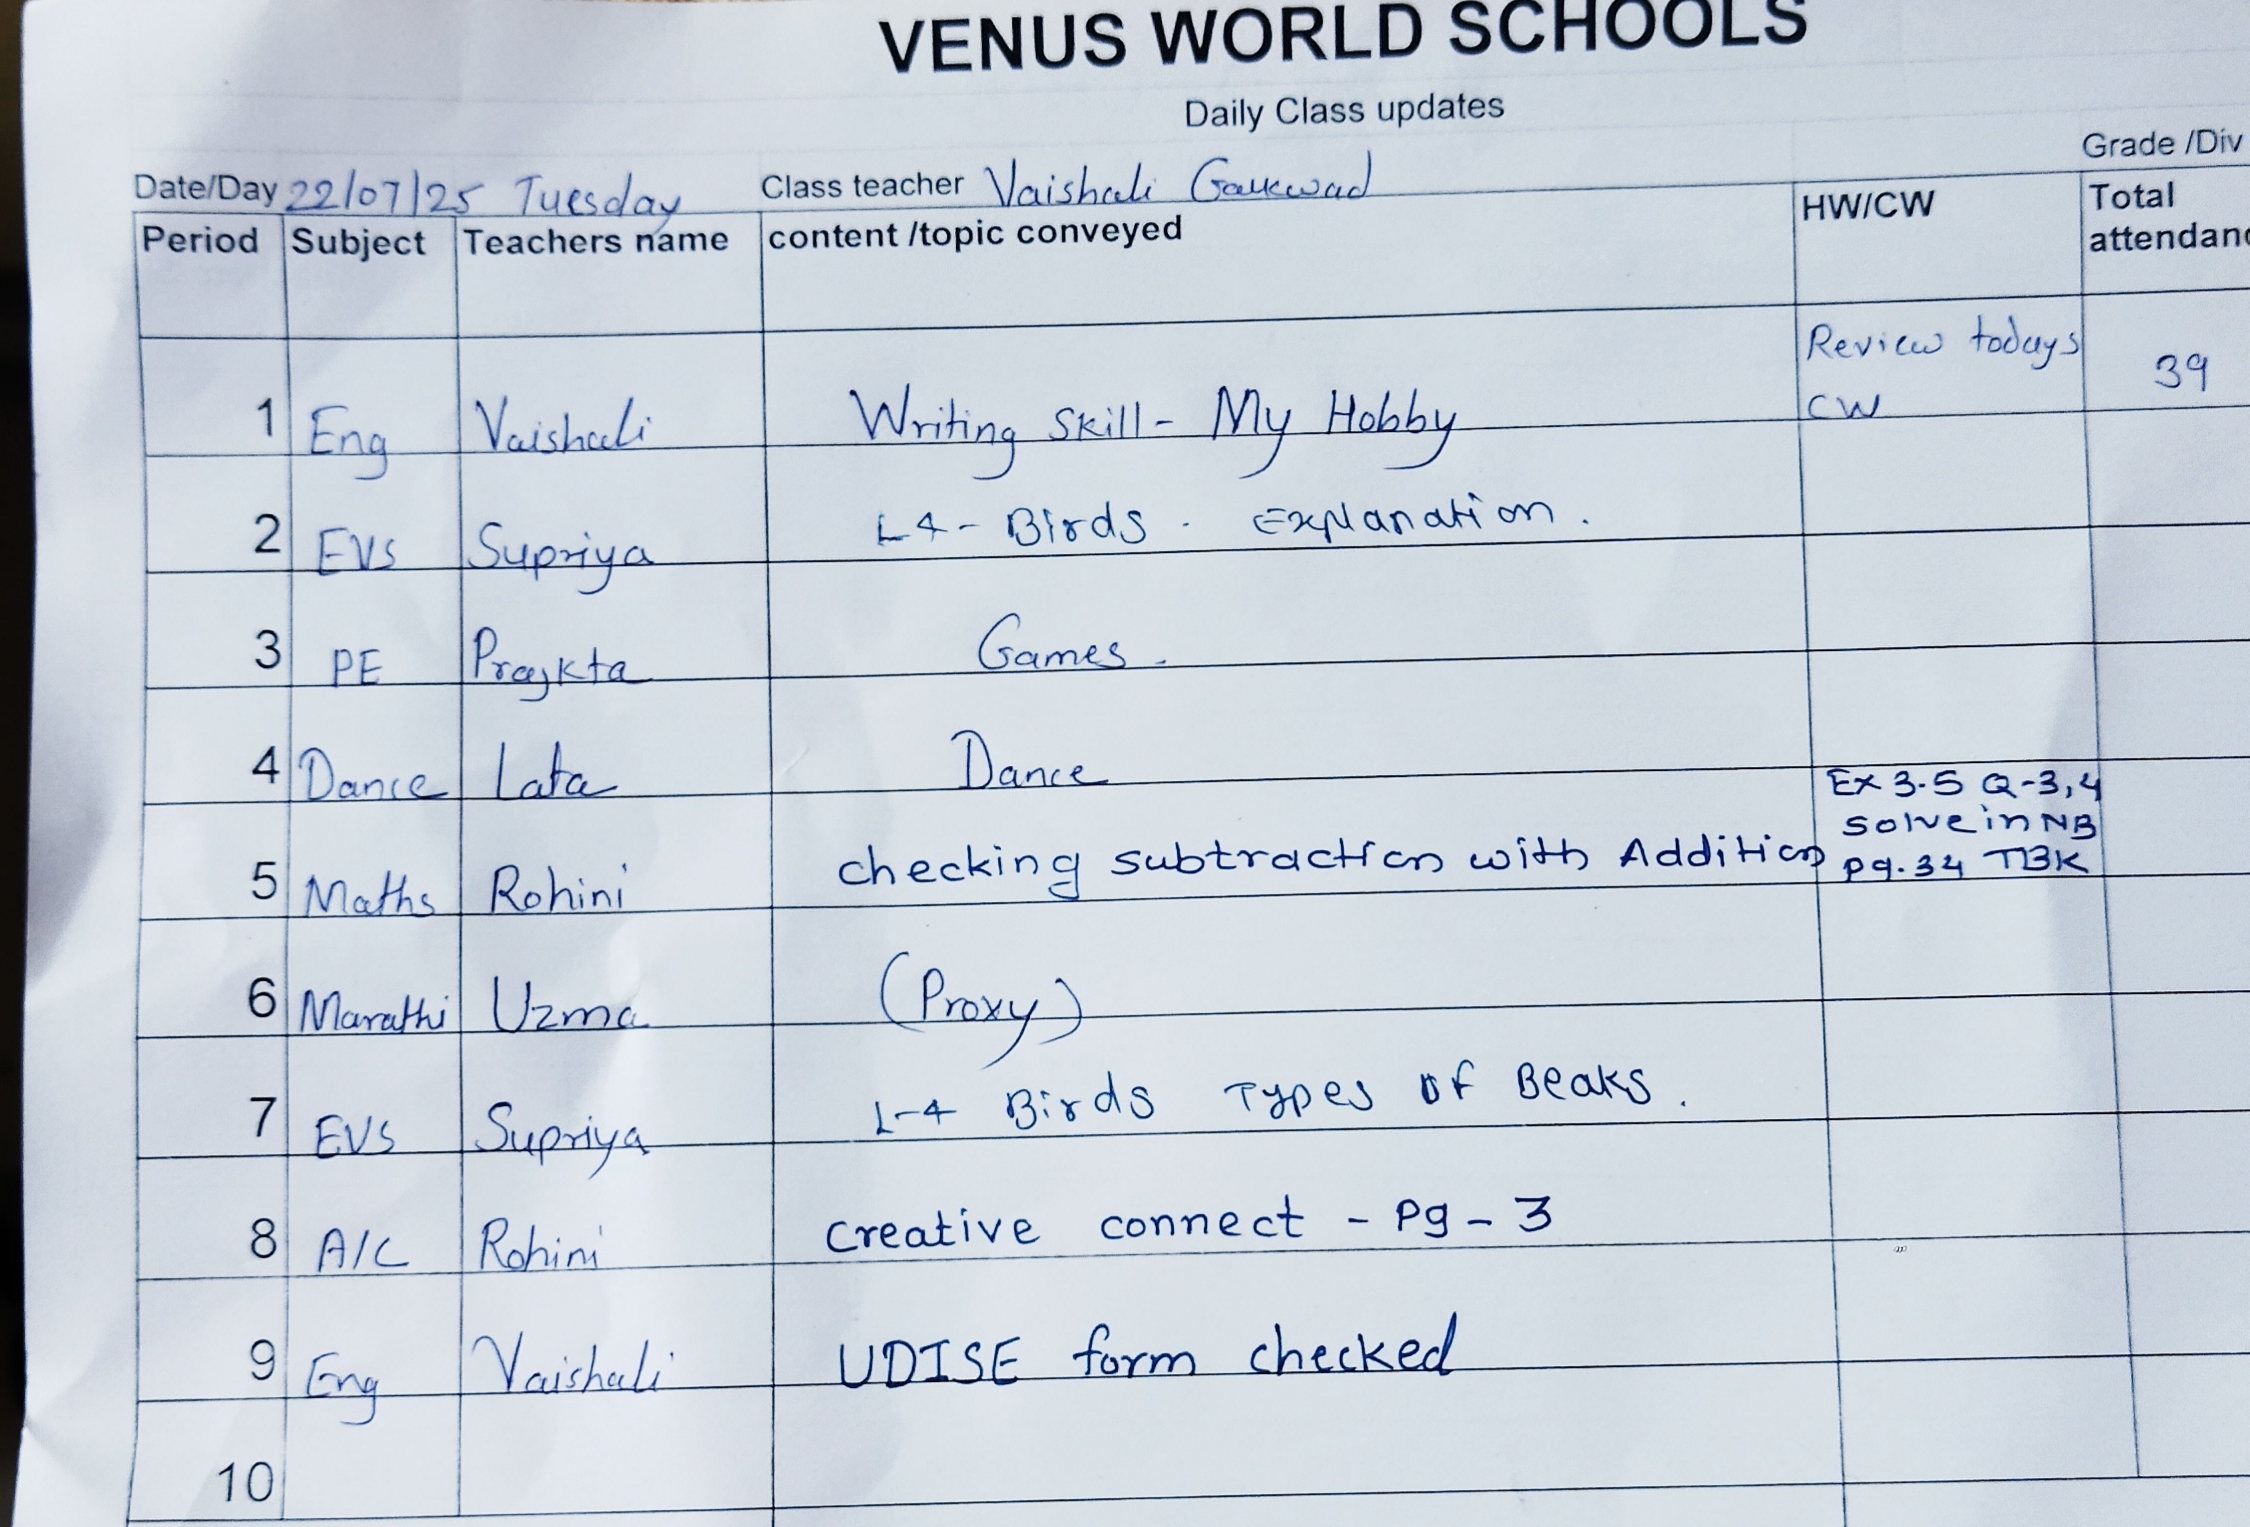 VENUS WORLD SCHOOLS
Daily Class updates
Grade /Div
Date/Day 22/07/25 Tuesday Class teacher Vaishali Gaikwad
Period Subject Teachers name content /topic conveyed HW/CW Total
attendanc
Review todays
CW
39
1 Eng Vaishali Writing Skill - My Hobby
2 EVS Supriya L4 - Birds - Explanation.
3 PE Prajkta Games.
4 Dance Lata Dance
Ex 3.5 Q-3,4
solve in NB
Pg.34 TBK
5 Maths Rohini checking subtraction with Addition
6 Marathi Uzma (Proxy)
7 EVS Supriya L-4 Birds Types of Beaks.
8 A/C Rohini creative connect - Pg - 3
9 Eng Vaishali UDISE form checked
10